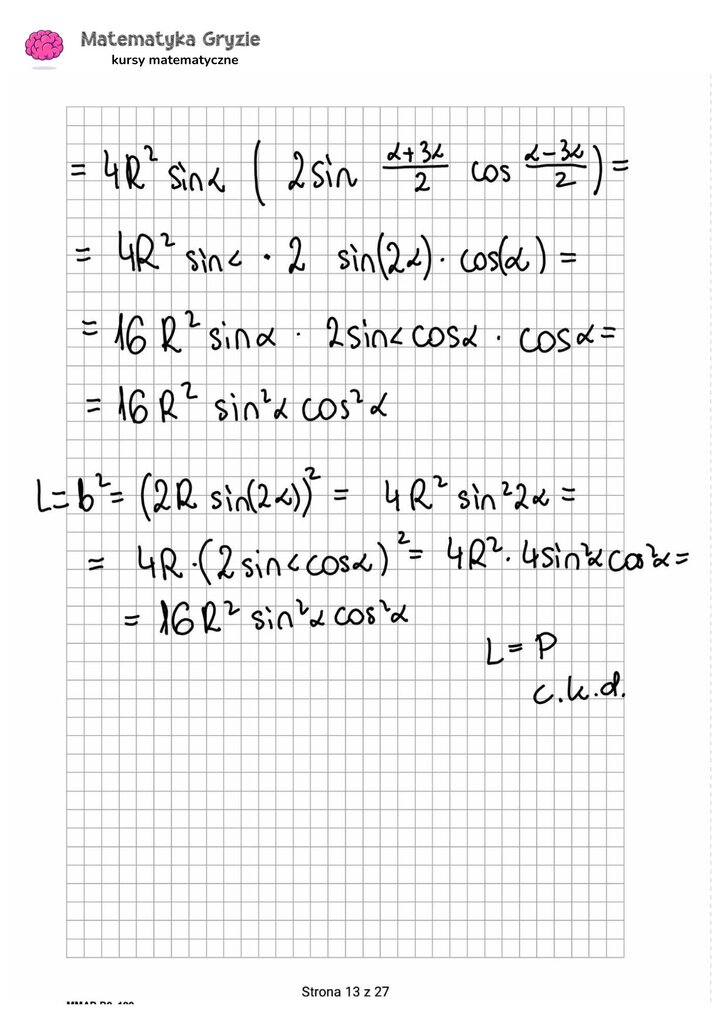 Matematyka Gryzie
kursy matematyczne
= 4R² sinα ( 2sin (α+3α)/2 cos (α-3α)/2 ) =
= 4R² sinα · 2 sin(2α) · cos(α) =
= 16 R² sinα · 2sinα cosα · cosα =
= 16 R² sin²α cos²α
L = b² = (2R sin(2α))² = 4R² sin²2α =
= 4R · (2sinα cosα)² = 4R² · 4sin²α cos²α =
= 16R² sin²α cos²α
L = P
c.k.d.
Strona 13 z 27